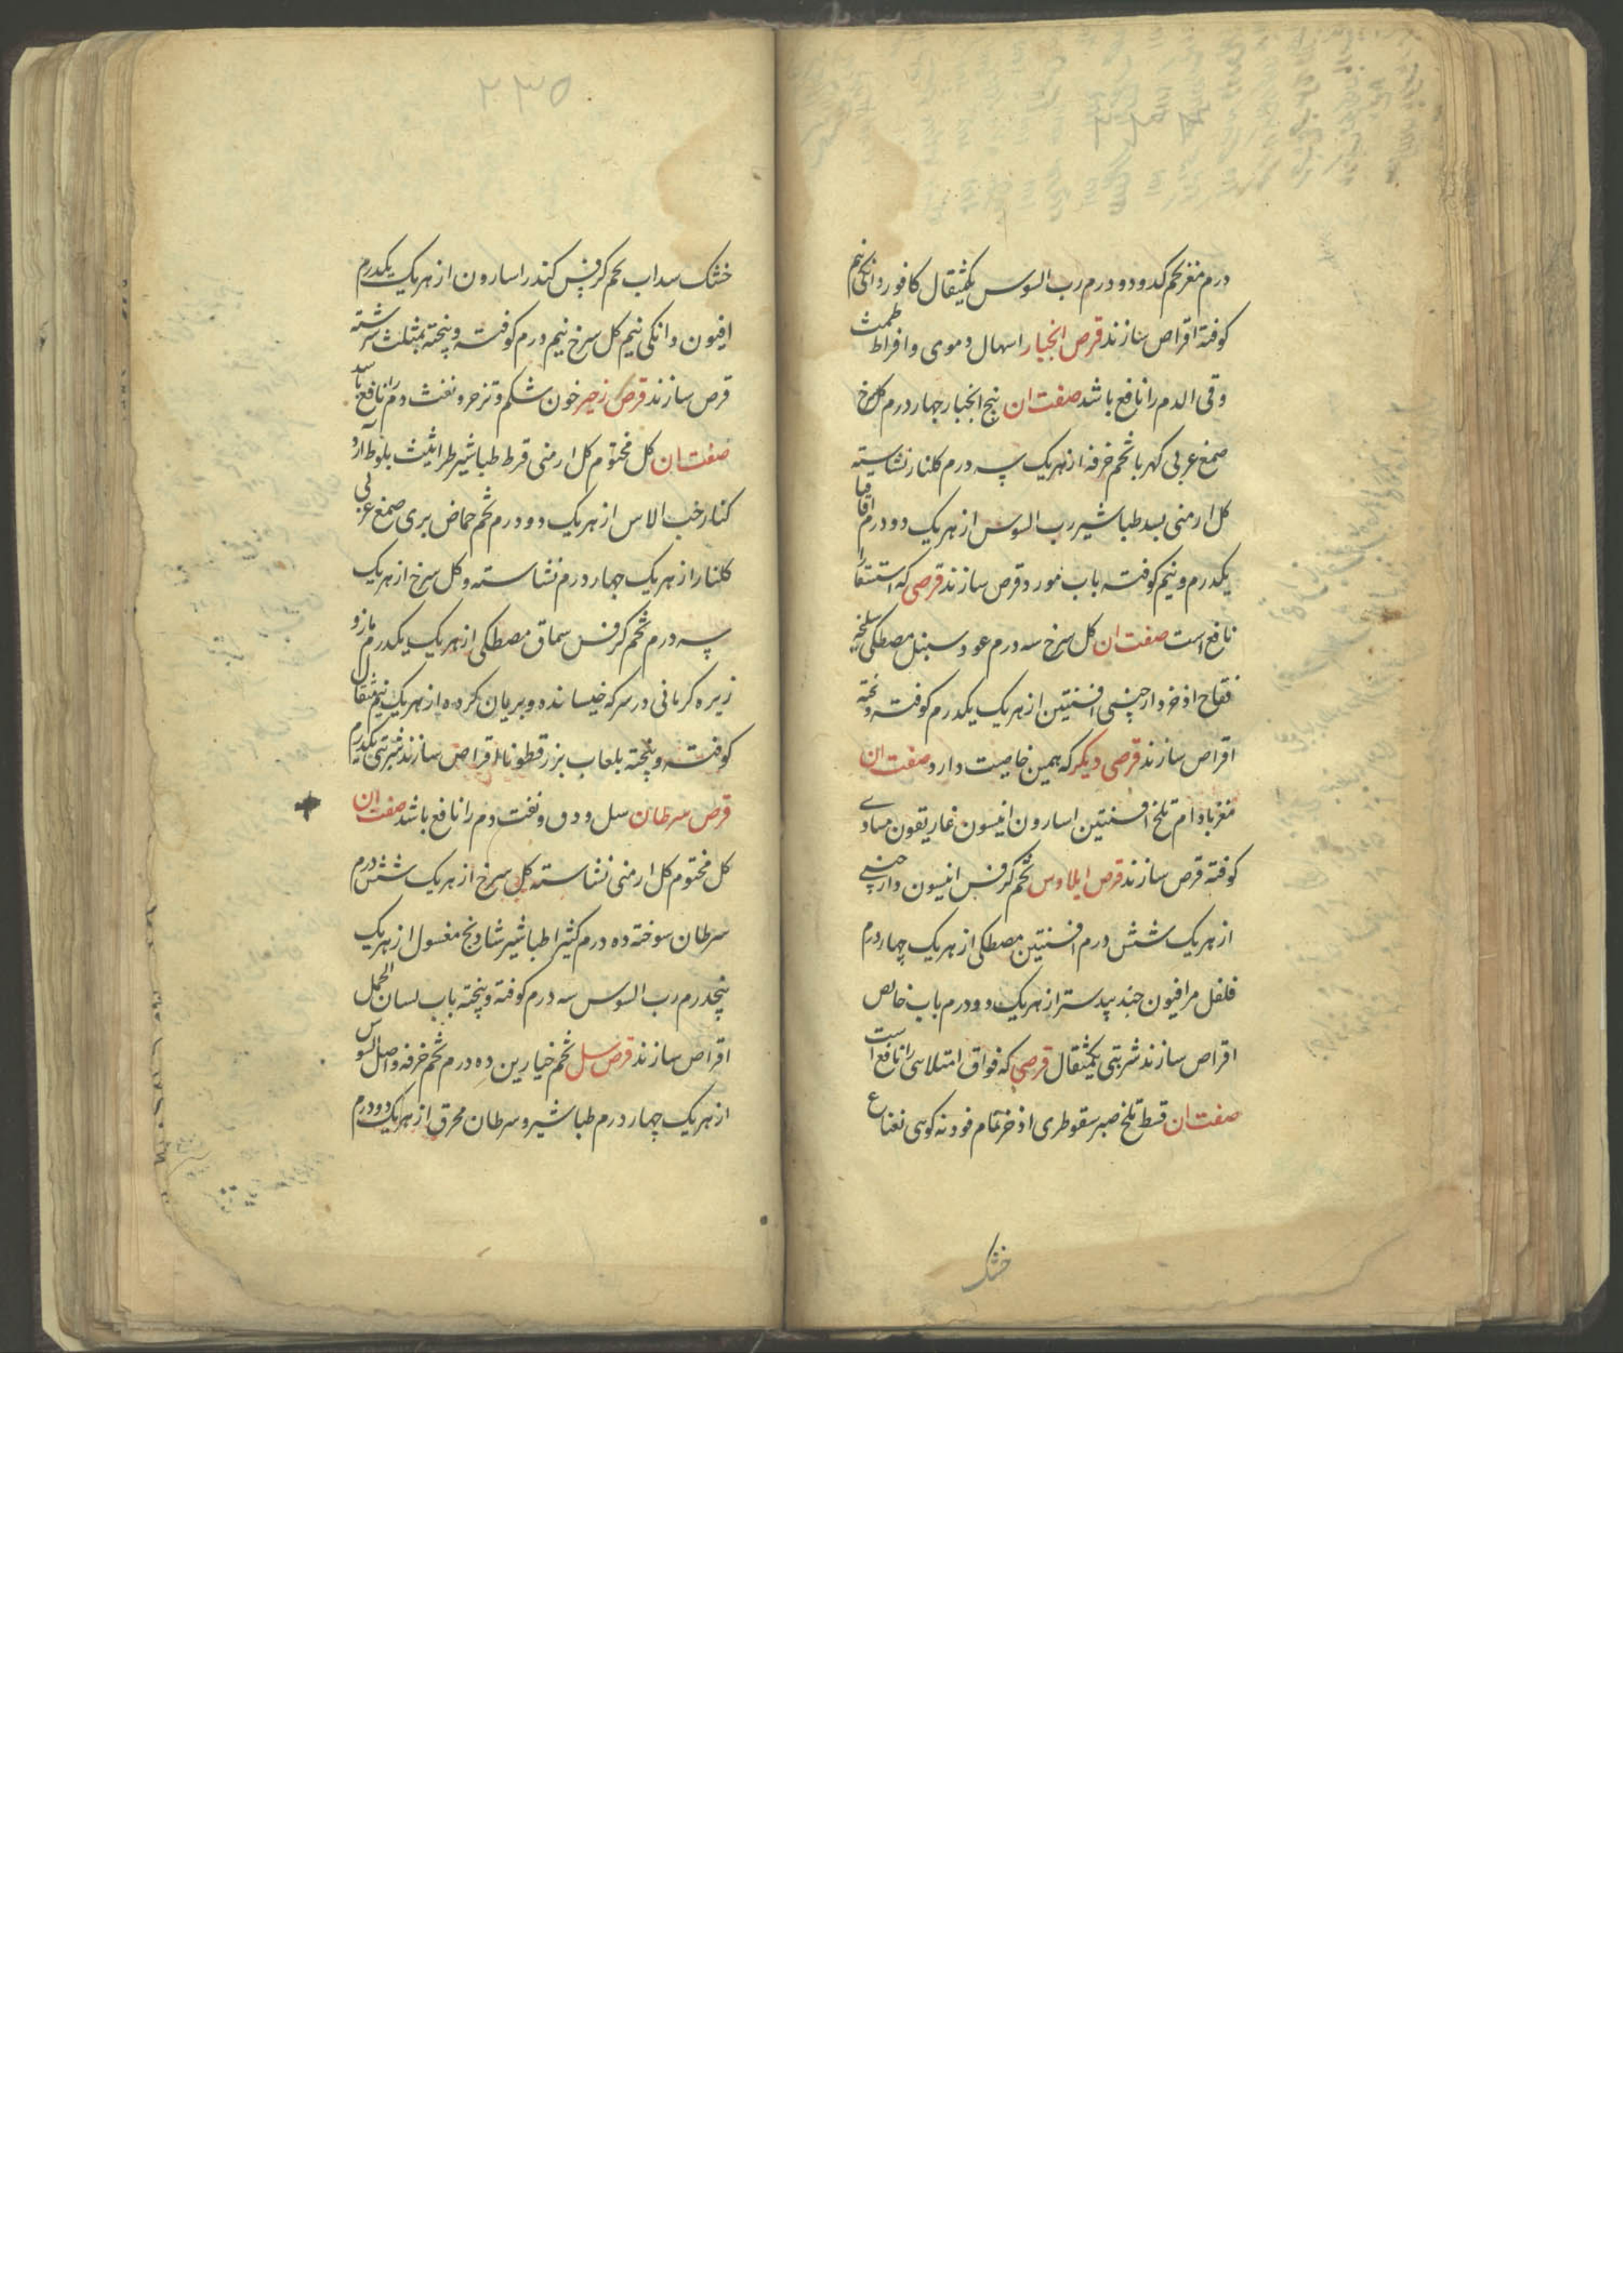 درم مغز تخم کدو دو درم رب السوس یکمثقال کافور دانکی نیم
کوفته اقراص سازند قرص انجبار اسهال دموی و افراط طمث
وقی الدم را نافع باشد صفت ان بیخ انجبار چهار درم کل سرخ
صمغ عربی کهربا تخم خرفه از هر یک سه درم کلنار نشاسته
کل ارمنی بسد طباشیر رب السوس از هر یک دو درم اقاقیا
یکدرم و نیم کوفته باب مورد قرص سازند قرصی که استسقا را
نافع است صفت ان کل سرخ سه درم عود سنبل مصطکی سلیخه
فقاح اذخر دارچینی افسنتین از هر یک یکدرم کوفته و پخته
اقراص سازند قرصی دیکر که همین خاصیت دارد صفت ان
مغز بادام تلخ افسنتین اسارون انیسون غاریقون مساوی
کوفته قرص سازند قرص ایلاوس تخم کرفس انیسون دارچینی
از هر یک شش درم افسنتین مصطکی از هر یک چهار درم
فلفل مر افیون جند بیدستر از هر یک دو درم باب خالص
اقراص سازند شربتی یکمثقال قرصی که فواق امتلائی را نافع است
صفت ان قسط تلخ صبر سقوطری اذخر نمام فودنه کوهی نعناع
خشک
۲۳۵
خشک سداب تخم کرفس کندر اسارون از هر یک یکدرم
افیون دانکی نیم کل سرخ نیم درم کوفته و پخته بمثلث سرشته
قرص سازند قرص زحیر خون شکم و تزحر و نفث دم را نافع باشد
صفت ان کل مختوم کل ارمنی قرط طباشیر طراثیث بلوط آرد
کنار حب الاس از هر یک دو درم تخم حماض بری صمغ عربی
کلنار از هر یک چهار درم نشاسته و کل سرخ از هر یک
سه درم تخم کرفس سماق مصطکی از هر یک یکدرم مازو
زیره کرمانی در سرکه خیسانده و بریان کرده از هر یک نیم مثقال
کوفته و پخته بلعاب بزر قطونا اقراص سازند شربتی یکدرم
قرص سرطان سل و دق و نفث دم را نافع باشد صفت ان
کل مختوم کل ارمنی نشاسته کل سرخ از هر یک شش درم
سرطان سوخته ده درم کثیرا طباشیر شادنج مغسول از هر یک
پنجدرم رب السوس سه درم کوفته و پخته باب لسان الحمل
اقراص سازند قرص سل تخم خیارین ده درم تخم خرفه و اصل السوس
از هر یک چهار درم طباشیر و سرطان محرق از هر یک دو درم